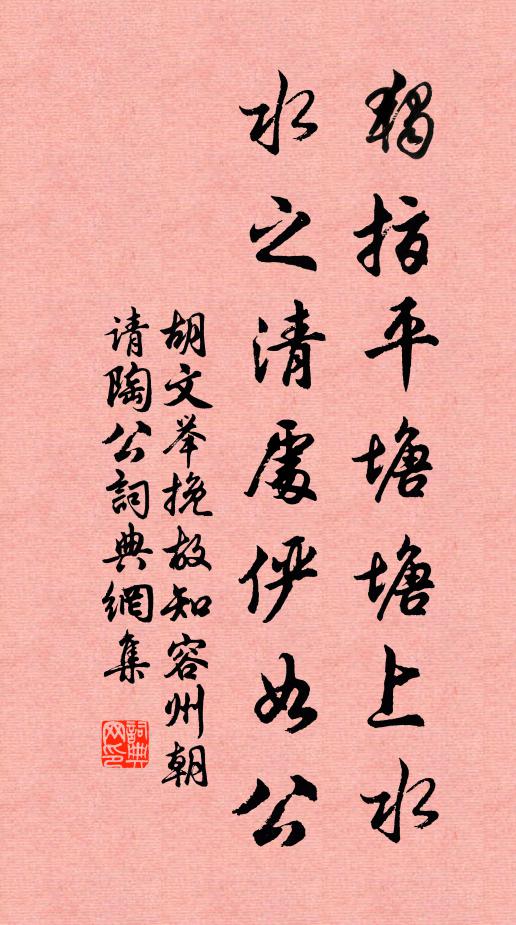 獨指平塘塘上水
水之清處儼如公
胡文举挽故知容州朝
请陶公詞典網集
詞典网印